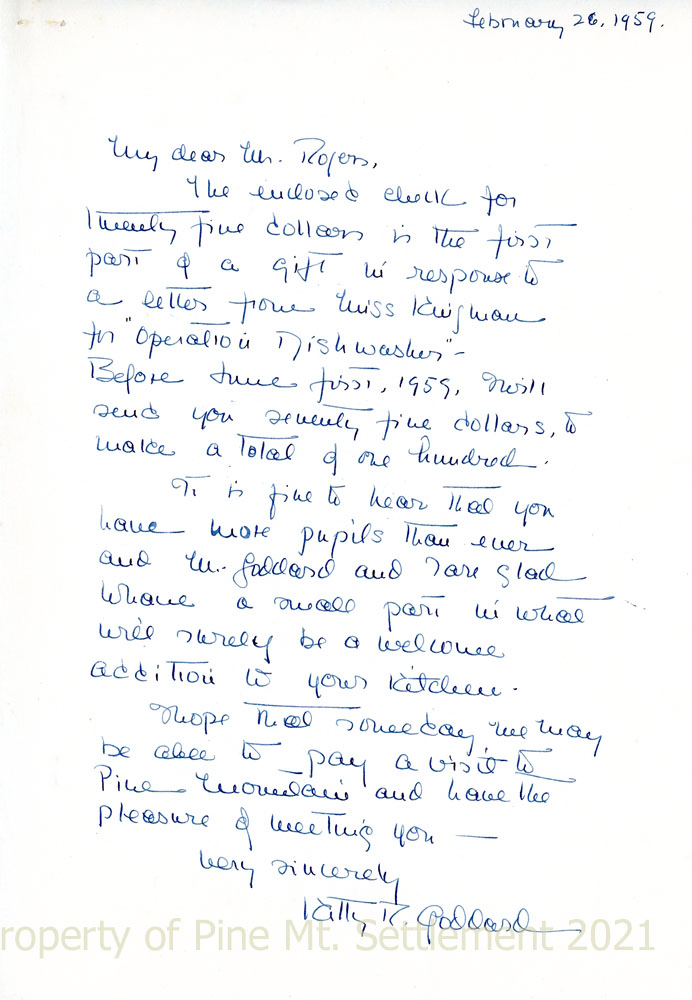 February 26, 1959.
My dear Mr. Rogers,
The enclosed check for
Twenty five dollars is the first
part of a gift in response to
a letter from Miss Kingman
for "Operation Dishwasher" -
Before June first, 1959, I will
send you seventy five dollars, to
make a total of one hundred.
It is fine to hear that you
have more pupils than ever
and Mr. Goddard and I are glad
to have a small part in what
will surely be a welcome
addition to your kitchen.
I hope that someday we may
be able to pay a visit to
Pine Mountain and have the
pleasure of meeting you —
Very sincerely
Kitty R. Goddard
roperty of Pine Mt. Settlement 2021